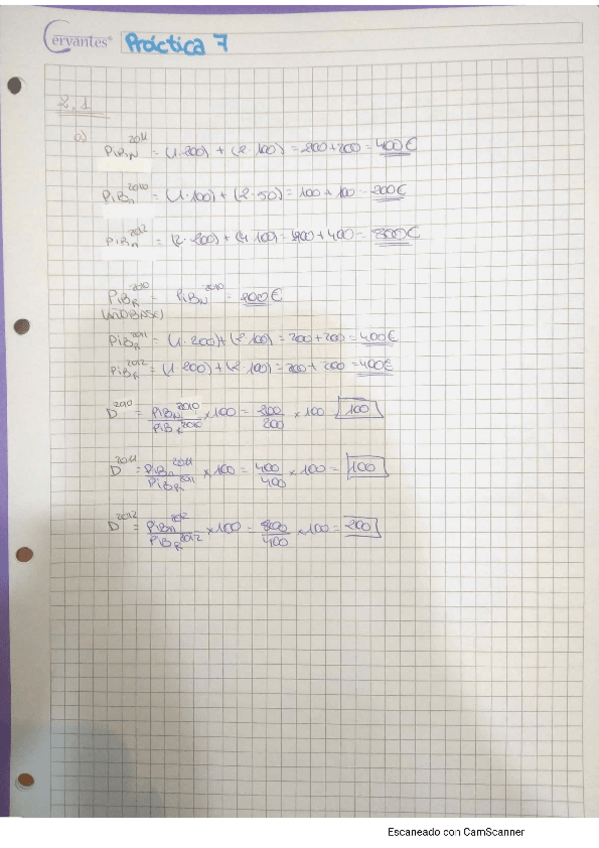 Cervantes® Práctica 7
2.1
a) PiB_N^2011 = (1·200) + (2·100) = 200+200 = 400€
PiB_n^2010 = (1·100) + (2·50) = 100 + 100 = 200€
PiB_n^2012 = (2·200) + (4·100) = 400 + 400 = 800€
PiB_R^2010 = PiB_N^2010 = 200€
(AÑO BASE)
PiB_R^2011 = (1·200)+(2·100) = 200+200 = 400€
PiB_R^2012 = (1·200) + (2·100) = 200 + 200 = 400€
D^2010 = PiB_N^2010 / PiB_R^2010 × 100 = 200/200 × 100 100
D^2011 = PiB_n^2011 / PiB_R^2011 × 100 = 400/400 × 100 = 100
D^2012 = PiB_n^2012 / PiB_R^2012 × 100 = 800/400 × 100 = 200
Escaneado con CamScanner